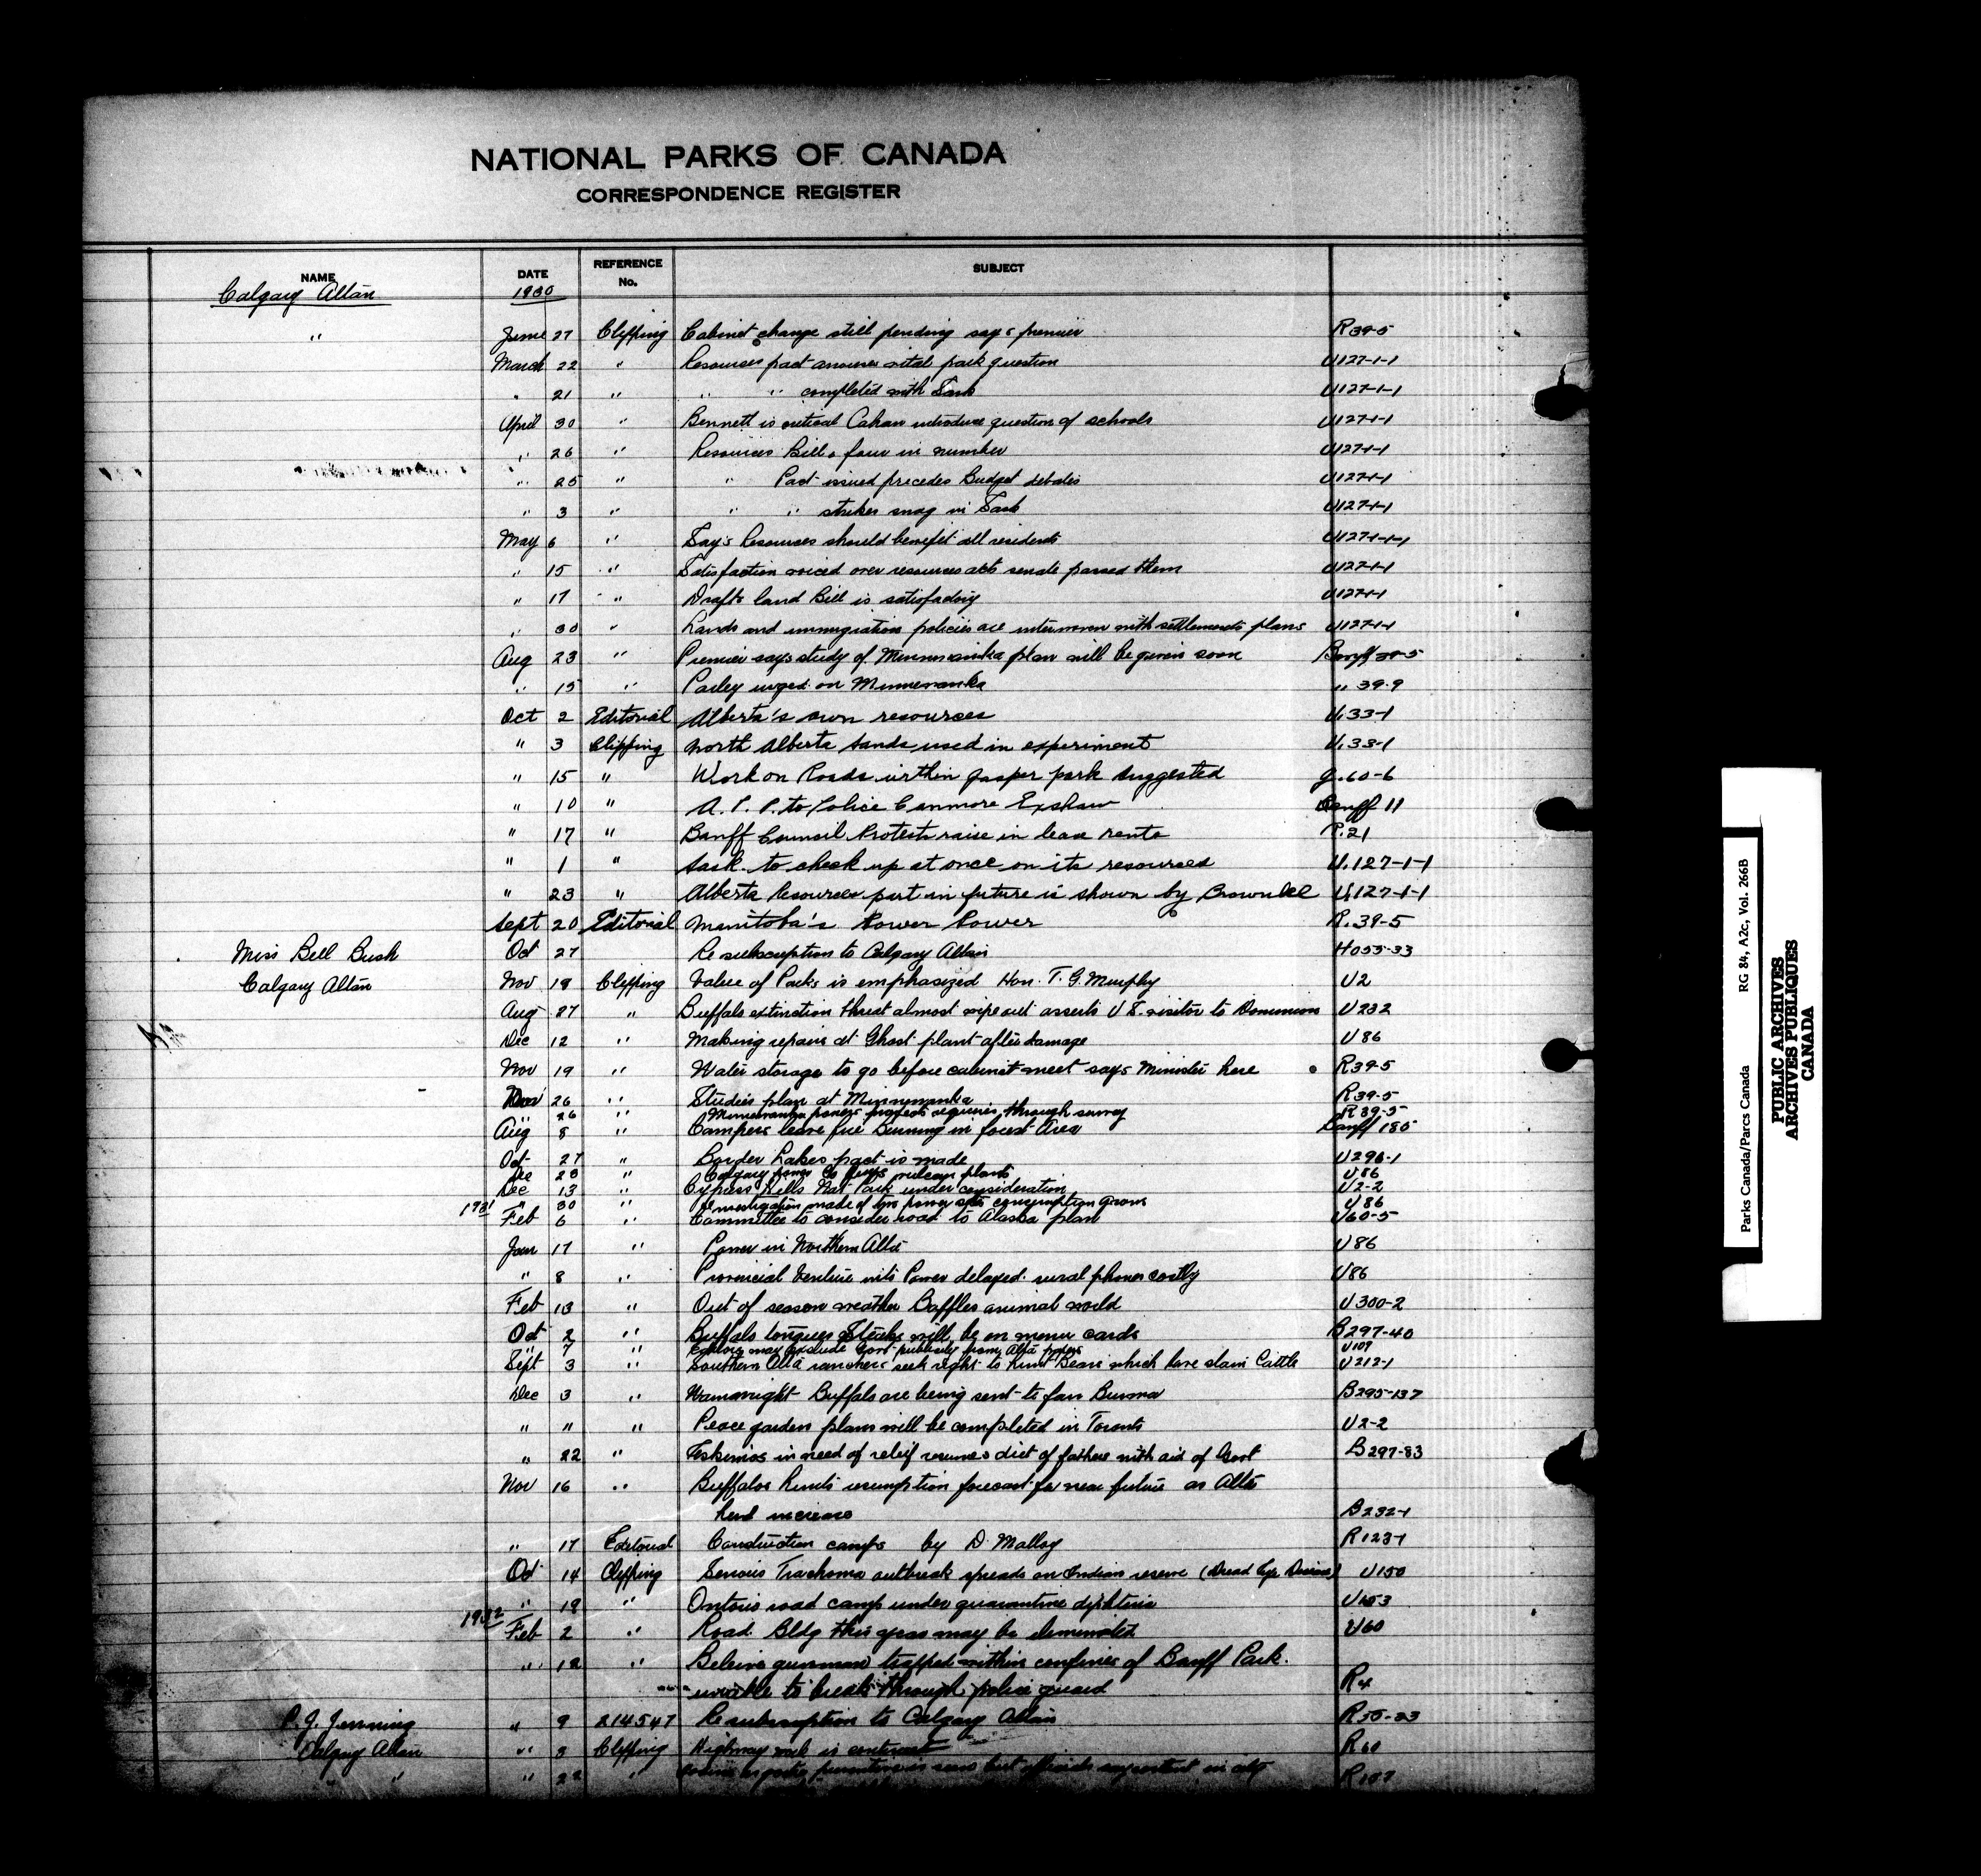 NATIONAL PARKS OF CANADA
CORRESPONDENCE REGISTER
NAME DATE REFERENCE No. SUBJECT
Calgary Altan 1930
" June 27 Clipping Cabinet change still pending says premier R39-5
March 22 " Resources pact answers vital park question U127-1-1
" 21 " " " completed with Sask U127-1-1
April 30 " Bennett is critical Cahan introduces question of schools U127-1-1
" 26 " Resources Bills four in number U127-1-1
" 25 " " Pact issued precedes Budget debates U127-1-1
" 3 " " " strikes snag in Sask U127-1-1
May 6 " Say's Resources should benefit all residents U127-1-1
" 15 " Satisfaction voiced over resources acts senate passed them U127-1-1
" 17 " Drafts land Bill is satisfactory U127-1-1
" 30 " Lands and immigration policies are interwoven with settlements plans U127-1-1
Aug 23 " Premier says study of Minnewanka plan will be given soon Banff 39-5
" 15 " Parley urged on Minnewanka " 39-9
Oct 2 Editorial Alberta's own resources U.33-1
" 3 Clipping North Alberta sands used in experiment U.33-1
" 15 " Work on Roads within Jasper park suggested J.60-6
" 10 " A.P.P. to Police Canmore Exshaw Banff 11
" 17 " Banff Council Protests raise in lease rents R.21
" 1 " Sask. to check up at once on its resources U.127-1-1
" 23 " Alberta Resources part in future is shown by Brownlee U.127-1-1
Sept 20 Editorial Manitoba's Power Power R.39-5
Miss Bell Bush Oct 27 Re subscription to Calgary Altan H055-33
Calgary Altan Nov 18 Clipping Value of Parks is emphasized Hon. T. G. Murphy U2
Aug 27 " Buffalo extinction threat almost wipe out asserts U.S. visitor to Dominion U232
Dec 12 " Making repairs at Ghost plant after damage U86
Nov 19 " Water storage to go before cabinet meet says Minister here R39-5
Nov 26 " Studies plan at Minnewanka R39-5
" 26 " Minnewanka power projects requires through survey R39-5
Aug 8 " Campers leave fire Burning in forest Area Banff 185
Oct 27 " Border Lakes pact is made U296-1
Dec 28 " Calgary power Co plants U86
Dec 13 " Cypress Hills Nat Park under consideration U2-2
" 30 " Investigation made of power sites consumption grows U86
1931 Feb 6 " Committee to consider road to Alaska plan U60-5
Jan 17 " Power in Northern Alta U86
" 8 " Provincial Venture into Power delayed rural phones costly U86
Feb 13 " Out of season weather Baffles animal world U300-2
Oct 2 " Buffalo tongues Steaks will be on menu cards B297-40
" 7 " Editors may exclude Govt publicity from Alta papers U109
Sept 3 " Southern Alta ranchers seek right to hunt Bears which have slain Cattle U212-1
Dec 3 " Wainwright Buffalo are being sent to far Burma B295-137
" " " Peace garden plans will be completed in Toronto U2-2
" 22 " Eskimos in need of relief resumes diet of fathers with aid of Govt B297-83
Nov 16 " Buffalos hunts resumption forecast for near future as Alta
herd increase B232-1
" 17 Editorial Construction camps by D. Malloy R123-1
Oct 14 Clipping Serious Trachoma outbreak spreads on Indian reserve (Dread Eye Disease) U150
" 19 " Ontario road camp under quarantine diphteria U153
1932 Feb 2 " Road Bldg this year may be eliminated U60
" 12 " Beleive gunman trapped within confines of Banff Park.
unable to break through police guard R4
P. J. Jennings " 9 214547 Re subscription to Calgary Altan R55-33
Calgary Altan " 3 Clipping Highway work is R60
" " " 22 " in city R107
Parks Canada/Parcs Canada RG 84, A2c, Vol. 266B
PUBLIC ARCHIVES
ARCHIVES PUBLIQUES
CANADA